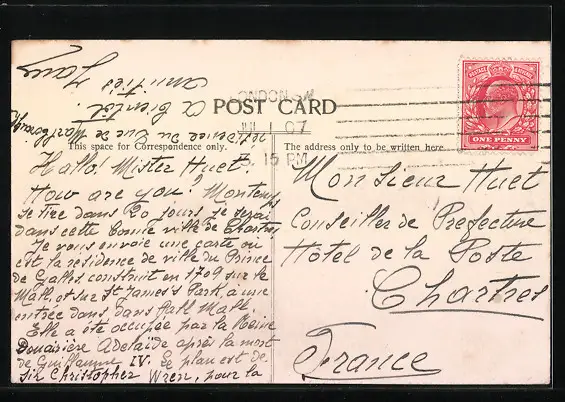 LONDON S.W
JUL 1 07
15 PM
POSTAGE REVENUE
ONE PENNY
POST CARD
This space for Correspondence only.
The address only to be written here.
Hallo! Mister Huet!
How are you? Mon temps
se tire dans 20 jours je serai
dans cette bonne ville de Chartres
Je vous envoie une carte où
est la résidence de ville du Prince
de Galles, construit en 1709 sur le
Mall, et sur St James's Park, a une
entrée dans, dans Pall Mall.
Elle a été occupée par la Reine
Douairière Adelaïde après la mort
de Guillaume IV. Le plan est de
Sir Christopher Wren, pour la
résidence du Duc de Marlborough
A bientôt.
amitiés
Monsieur Huet
Conseiller de Prefecture
Hôtel de la Poste
Chartres
France